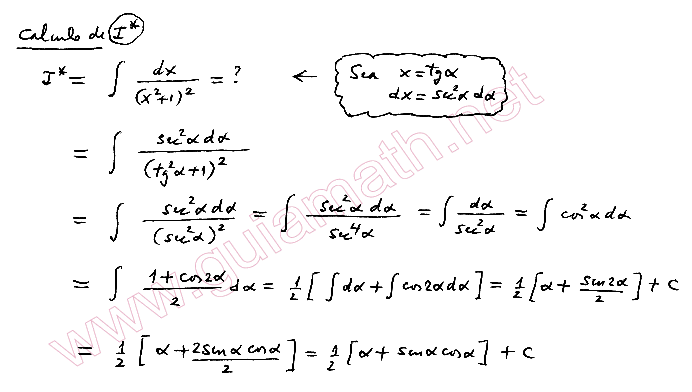 Calculo de I*
I* = ∫ dx/(x²+1)² = ? ← Sea x = tgα
dx = sec²α dα
= ∫ sec²α dα/(tg²α+1)²
= ∫ sec²α dα/(sec²α)² = ∫ sec²α dα/sec⁴α = ∫ dα/sec²α = ∫ cos²α dα
= ∫ (1+cos2α)/2 dα = 1/2 [∫ dα + ∫ cos2α dα] = 1/2 [α + sen2α/2] + C
= 1/2 [α + 2senα cosα/2] = 1/2 [α + senα cosα] + C
www.guiamath.net